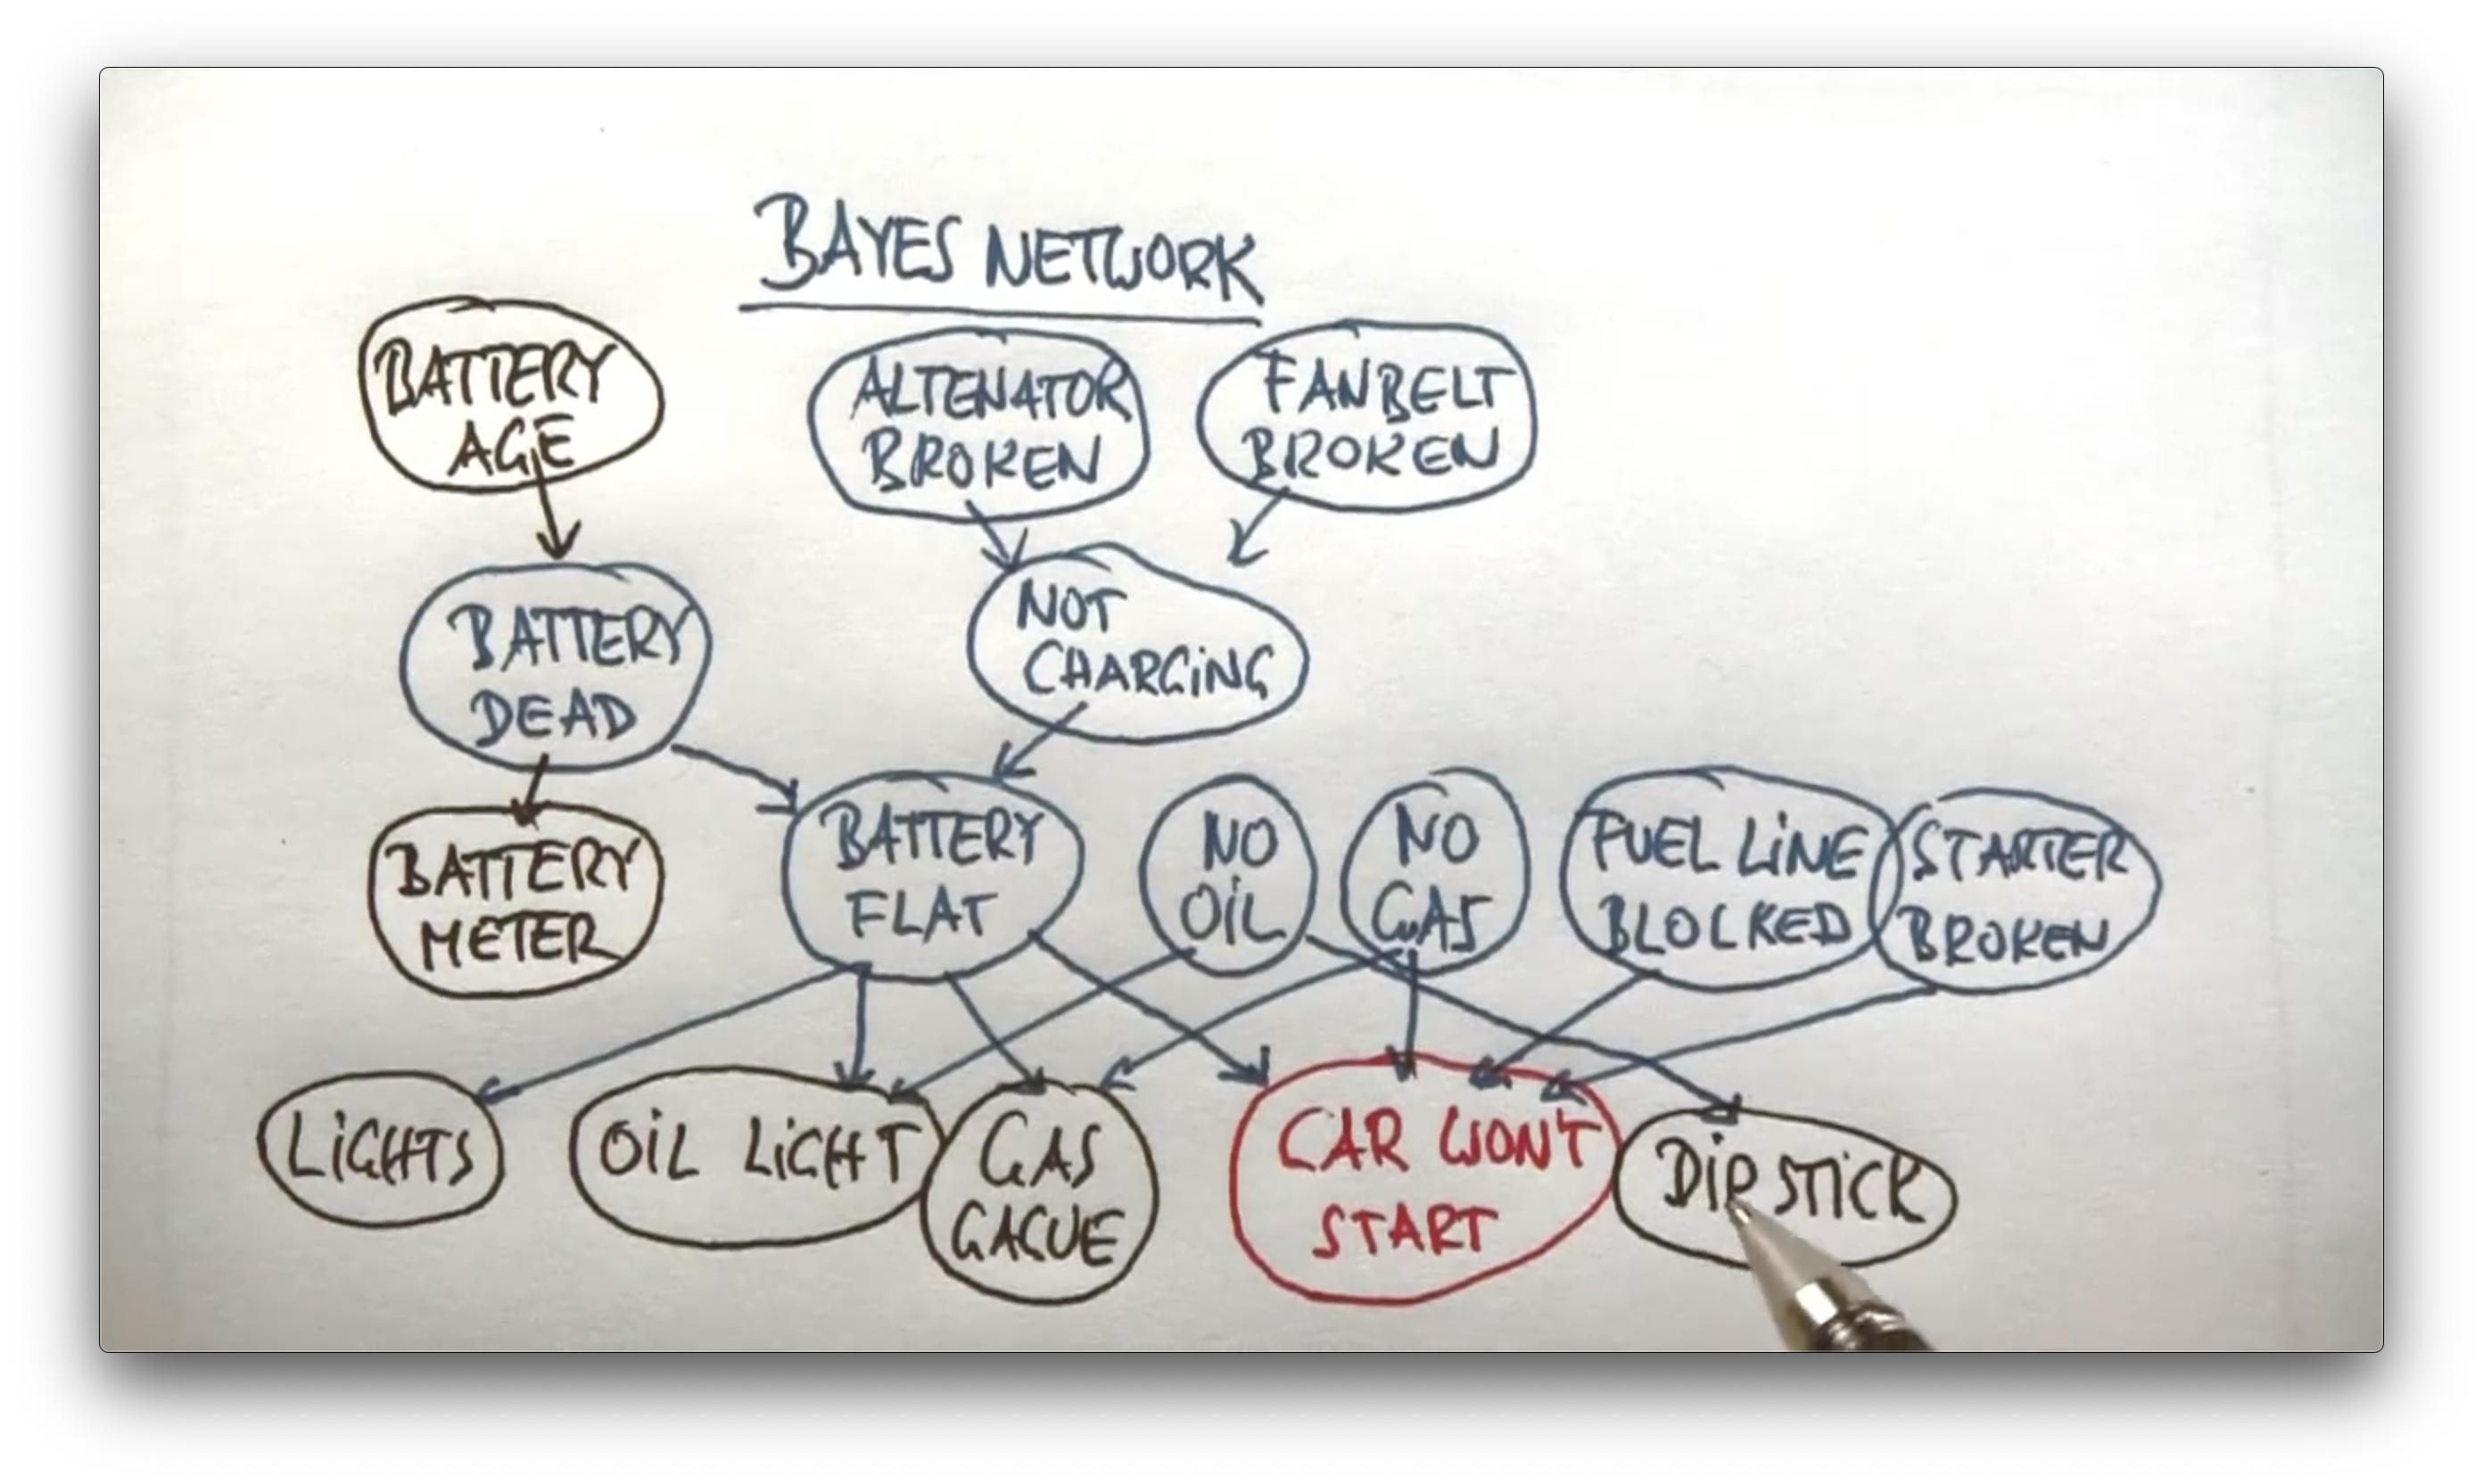 BAYES NETWORK
BATTERY
AGE
ALTENATOR
BROKEN
FANBELT
BROKEN
BATTERY
DEAD
NOT
CHARGING
BATTERY
METER
BATTERY
FLAT
NO
OIL
NO
GAS
FUEL LINE
BLOCKED
STARTER
BROKEN
LIGHTS
OIL LIGHT
GAS
GAGUE
CAR WON'T
START
DIPSTICK